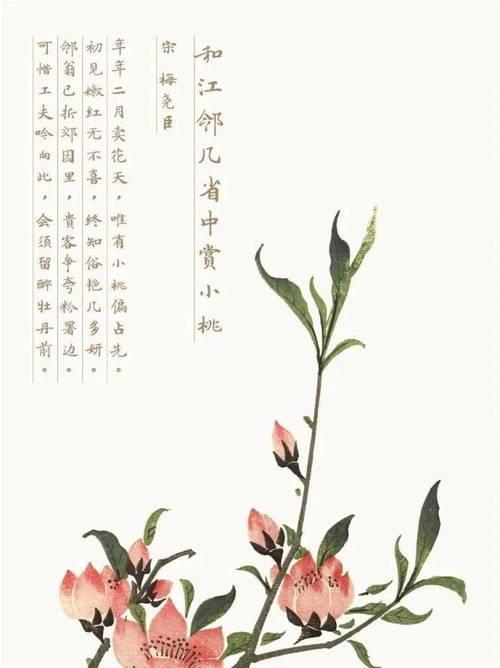 和江邻几省中赏小桃
宋 梅尧臣
年年二月卖花天，唯有小桃偏占先。
初见嫩红无不喜，终知俗艳几多妍。
邻翁已折郊园里，貴客争夸粉署边。
可惜工夫吟向此，会须留醉牡丹前。